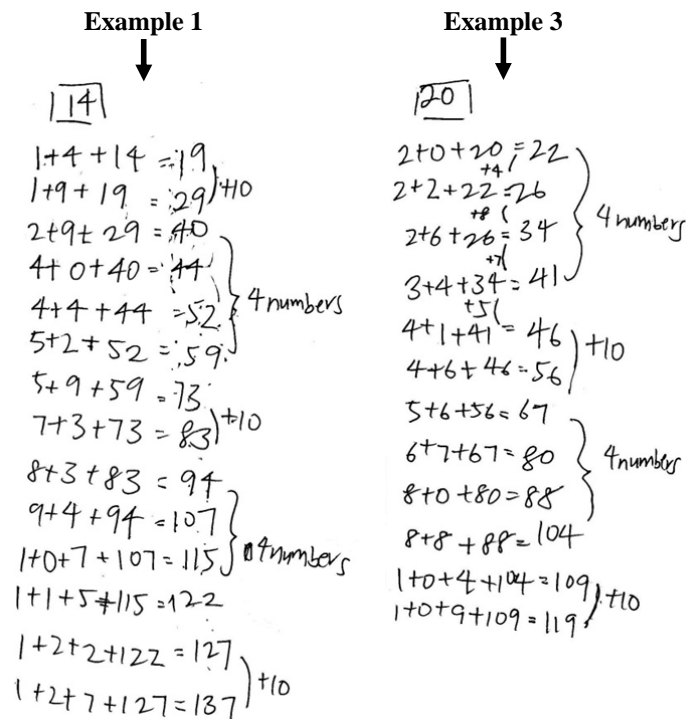 Example 1
14
1+4+14 = 19
1+9+19 = 29
+10
2+9+29 = 40
4+0+40 = 44
4+4+44 = 52
5+2+52 = 59
4 numbers
5+9+59 = 73
7+3+73 = 83
+10
8+3+83 = 94
9+4+94 = 107
1+0+7+107 = 115
4 numbers
1+1+5+115 = 122
1+2+2+122 = 127
1+2+7+127 = 137
+10
Example 3
20
2+0+20 = 22
+4
2+2+22 = 26
+8
2+6+26 = 34
+7
3+4+34 = 41
4 numbers
+5
4+1+41 = 46
4+6+46 = 56
+10
5+6+56 = 67
6+7+67 = 80
8+0+80 = 88
8+8+88 = 104
4 numbers
1+0+4+104 = 109
1+0+9+109 = 119
+10